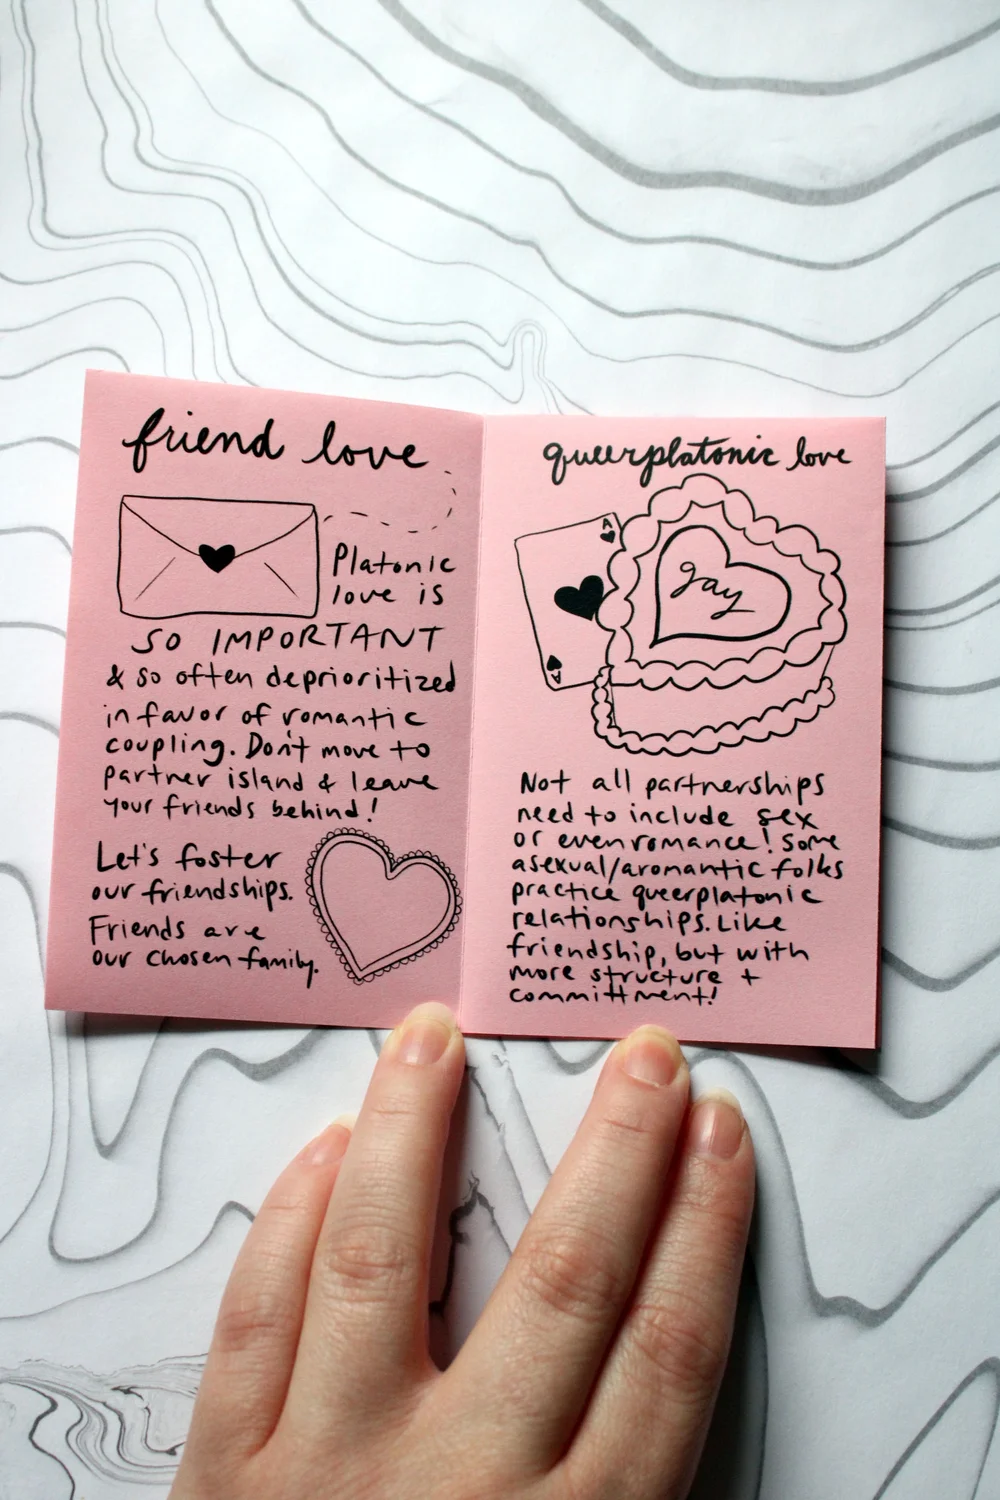 friend love
Platonic
love is
SO IMPORTANT
& so often deprioritized
in favor of romantic
coupling. Don't move to
partner island & leave
your friends behind!
Let's foster
our friendships.
Friends are
our chosen family.
queerplatonic love
A
gay
A
Not all partnerships
need to include sex
or even romance! Some
asexual/aromantic folks
practice queerplatonic
relationships. Like
friendship, but with
more structure +
committment!